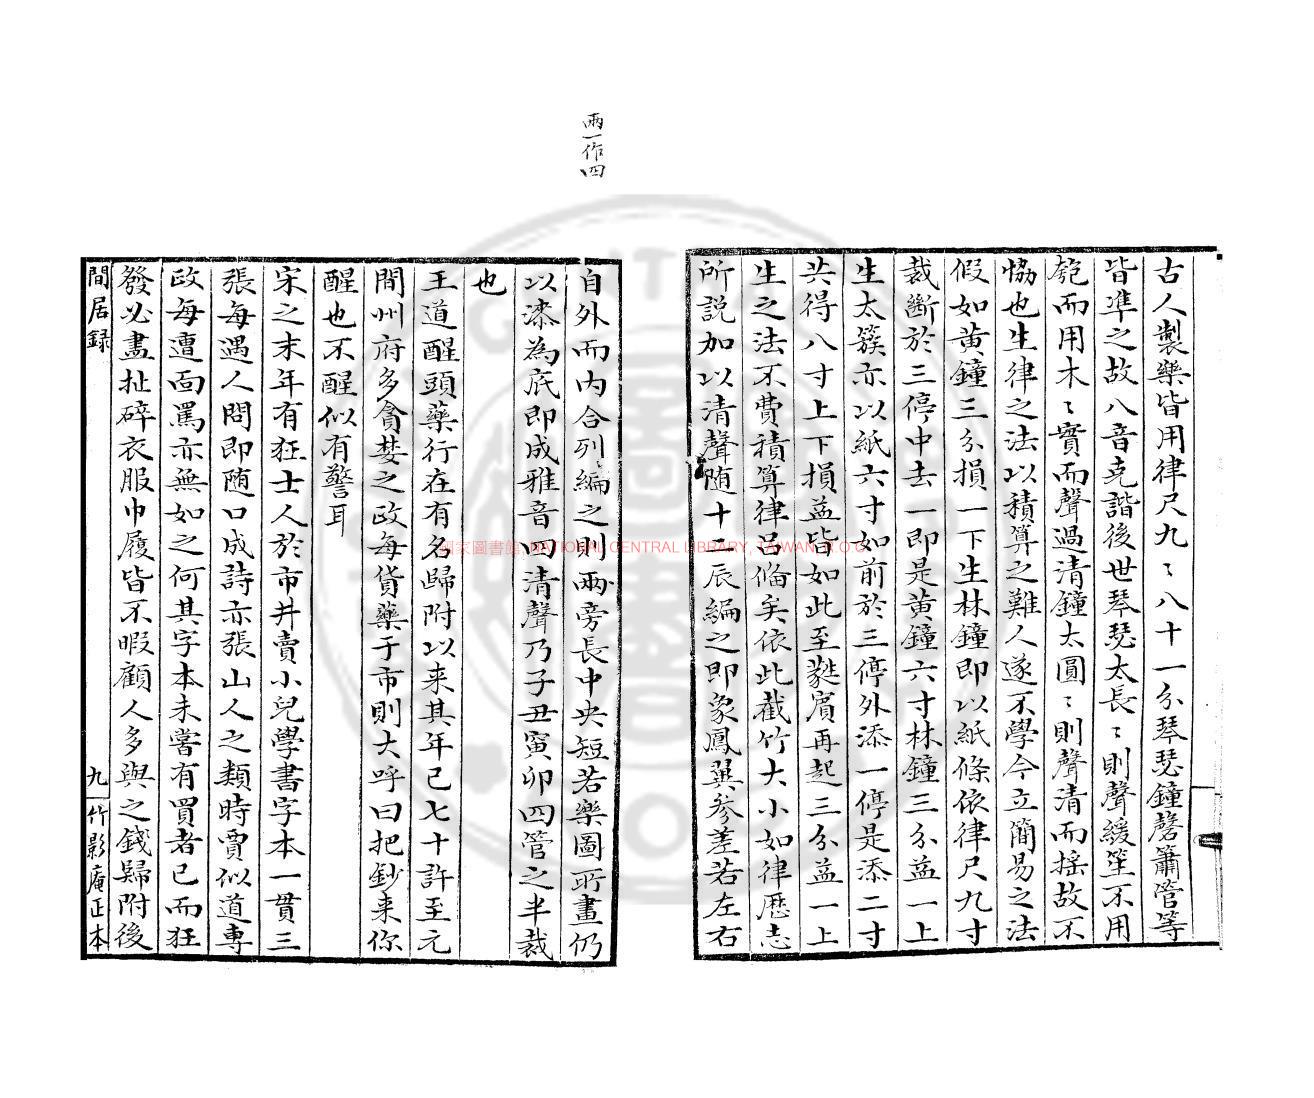 古人製樂皆用律尺九〻八十一分琴瑟鐘磬簫管等
皆準之故八音克諧後世琴瑟太長〻則聲緩笙不用
匏而用木〻實而聲過清鐘太圓〻則聲清而揺故不
恊也生律之法以積算之難人遂不學今立簡易之法
假如黄鐘三分損一下生林鐘即以紙條依律尺九寸
裁斷於三停中去一即是黄鐘六寸林鐘三分益一上
生太簇亦以紙六寸如前於三停外添一停是添二寸
共得八寸上下損益皆如此至蕤賓再起三分益一上
生之法不費積算律吕偹矣依此截竹大小如律歴志
所說加以清聲随十二辰編之即象鳳翼參差若左右
兩一作四
自外而内合列編之則兩旁長中央短若樂圖所畫仍
以漆為底即成雅音四清聲乃子丑寅卯四管之半裁
也
王道醒頭藥行在有名歸附以来其年已七十許至元
間州府多貪婪之政每貨藥于市則大呼曰把鈔来你
醒也不醒似有警耳
宋之末年有狂士人於市井賣小兒學書字本一貫三
張每遇人問即随口成詩亦張山人之類時賈似道專
政每遭面罵亦無如之何其字本未嘗有買者已而狂
發必盡扯碎衣服巾履皆不暇顧人多與之錢歸附後
間居録
九
竹影庵正本
國家圖書館, NATIONAL CENTRAL LIBRARY, TAIWAN, R.O.C